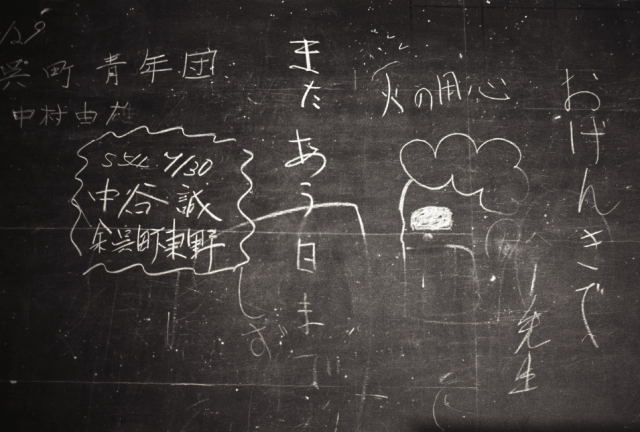 おげんきで
先生
火の用心
また あう日まで
1/29
呉町青年団
中村由雄
S54 7/30
中谷 誠
余呉町東野